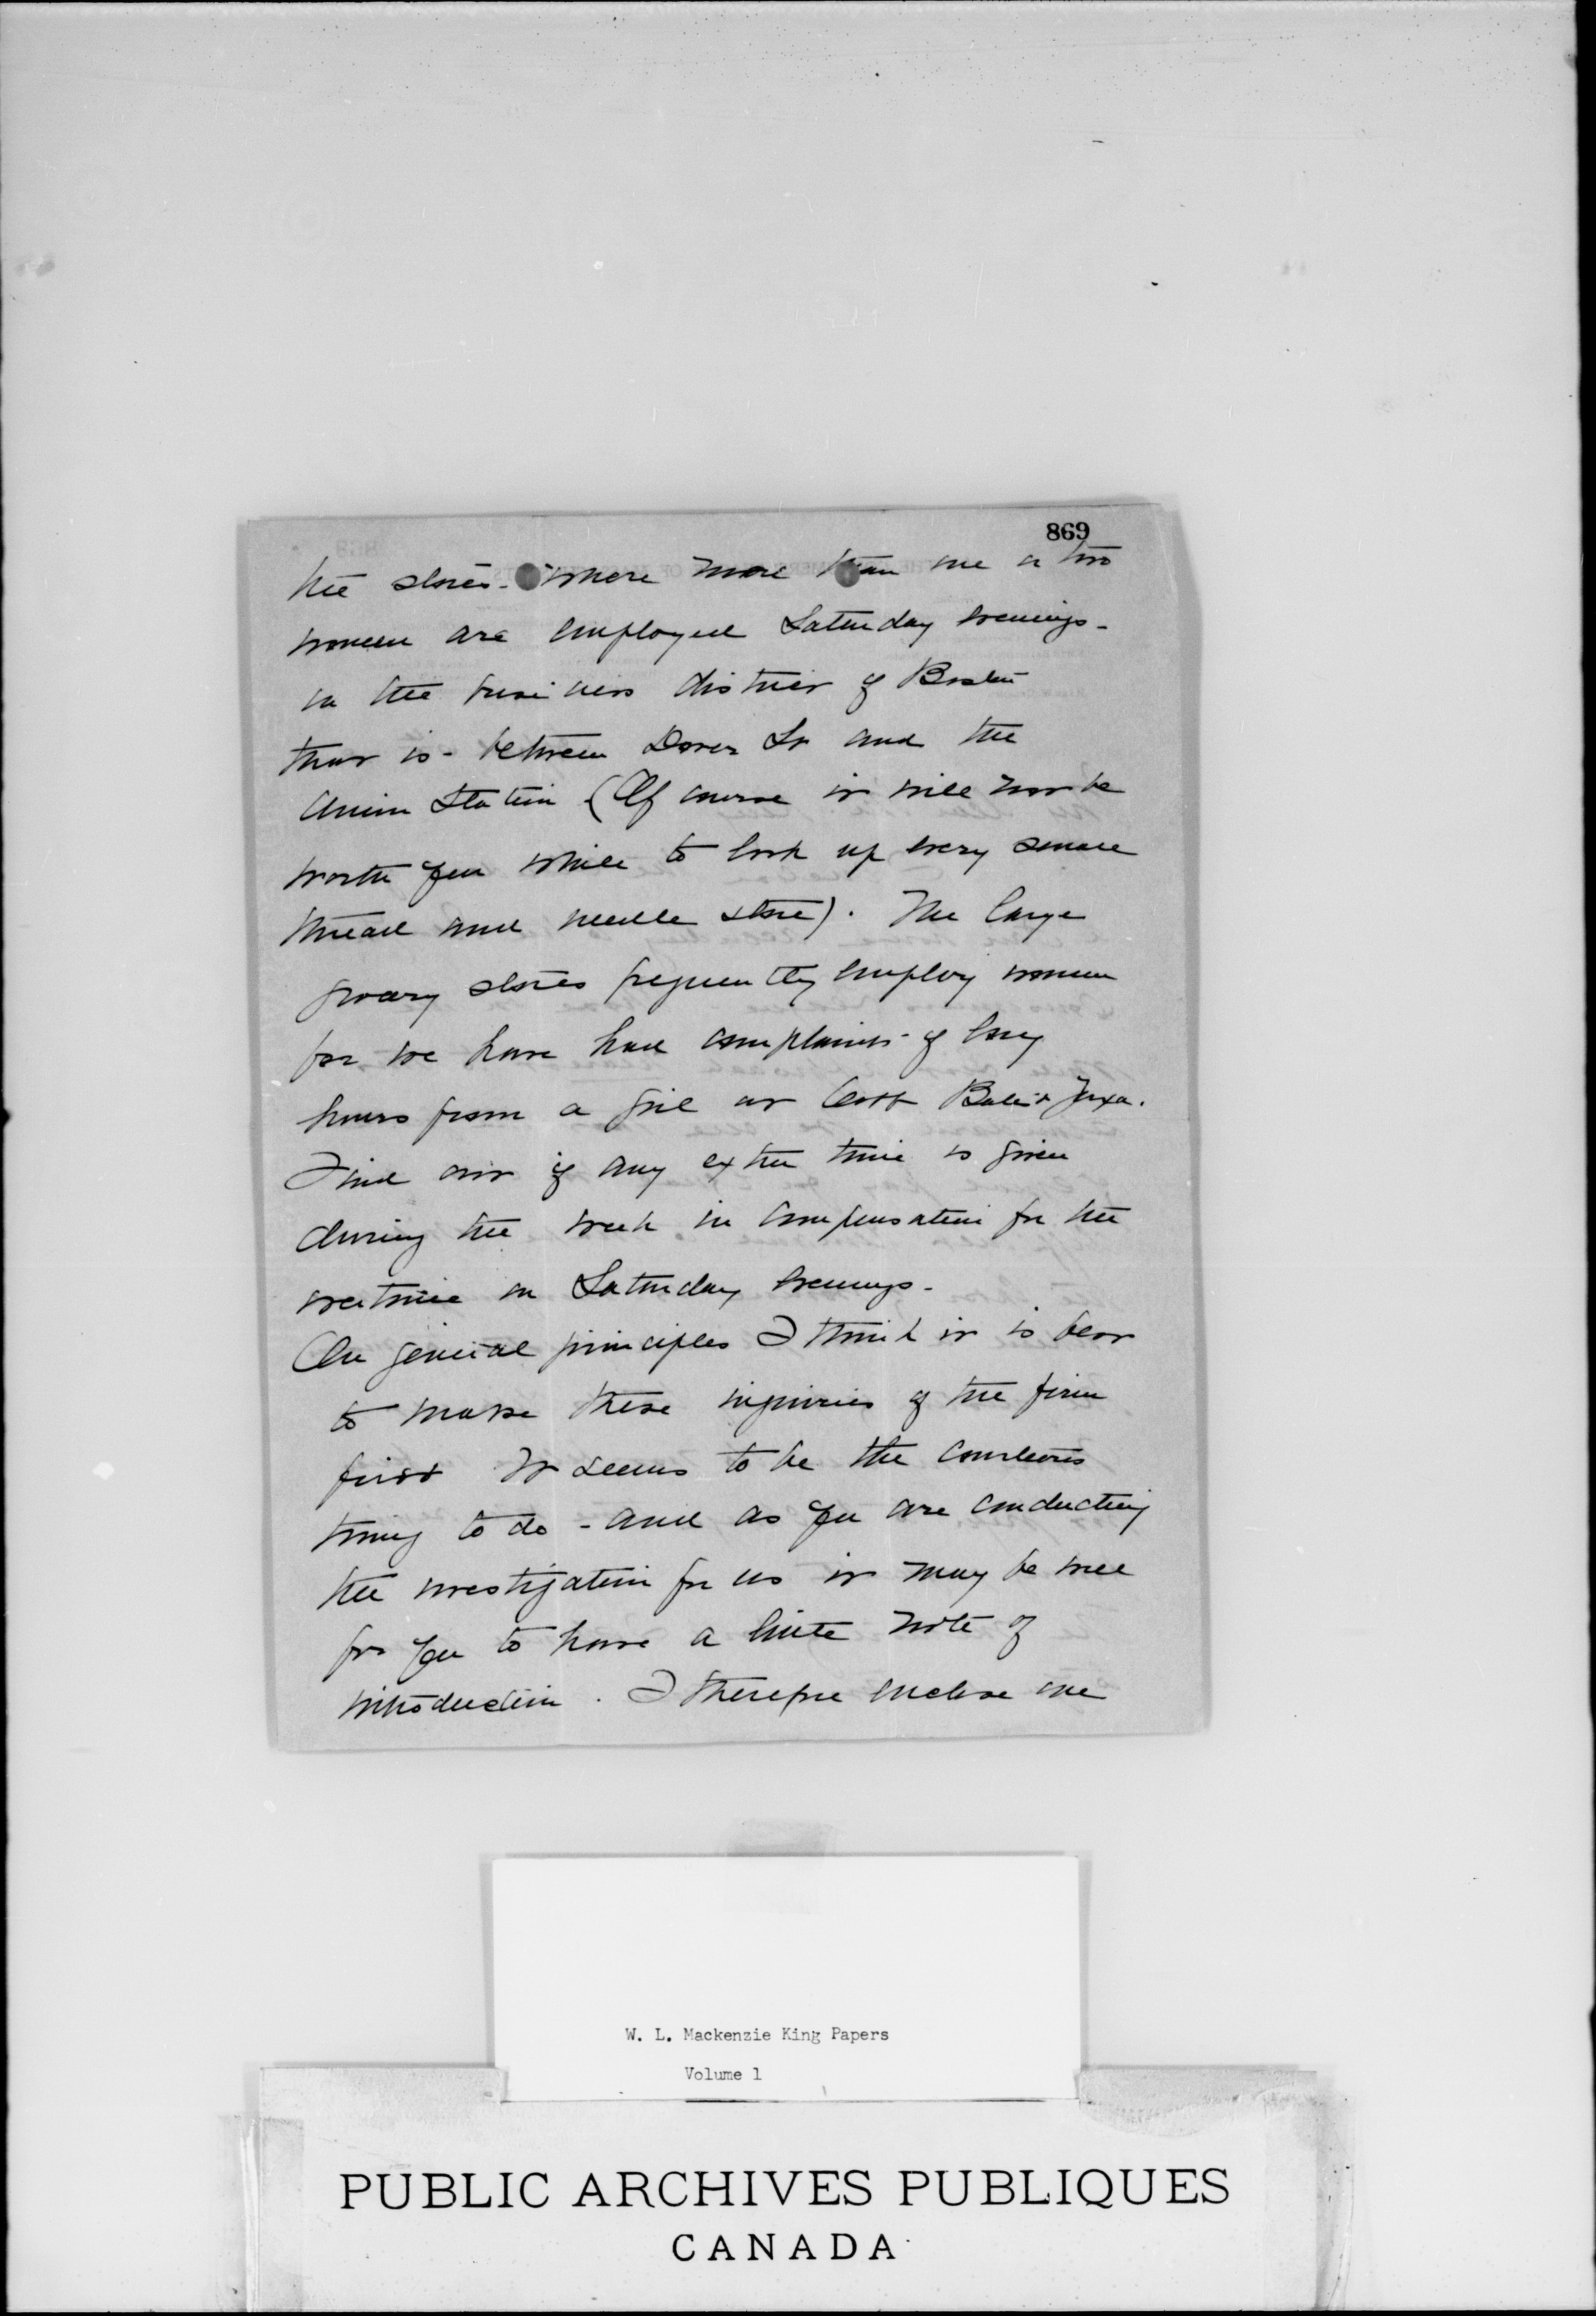 869
the stores - where more than one or two
women are employed Saturday evenings -
in the business district of Boston
that is - between Dover St and the
Union Station (Of course it will not be
worth your while to look up every small
thread and needle store). The large
grocery stores frequently employ women
for we have had complaints of long
hours from a girl at Cobb Bates & Yerxa.
Find out if any extra time is given
during the week in compensation for the
overtime on Saturday evenings -
On general principles I think it is best
to make these inquiries of the firm
first It seems to be the courteous
thing to do - and as you are conducting
the investigation for us it may be well
for you to have a little note of
introduction. I therefore enclose one
W. L. Mackenzie King Papers
Volume 1
PUBLIC ARCHIVES PUBLIQUES
CANADA